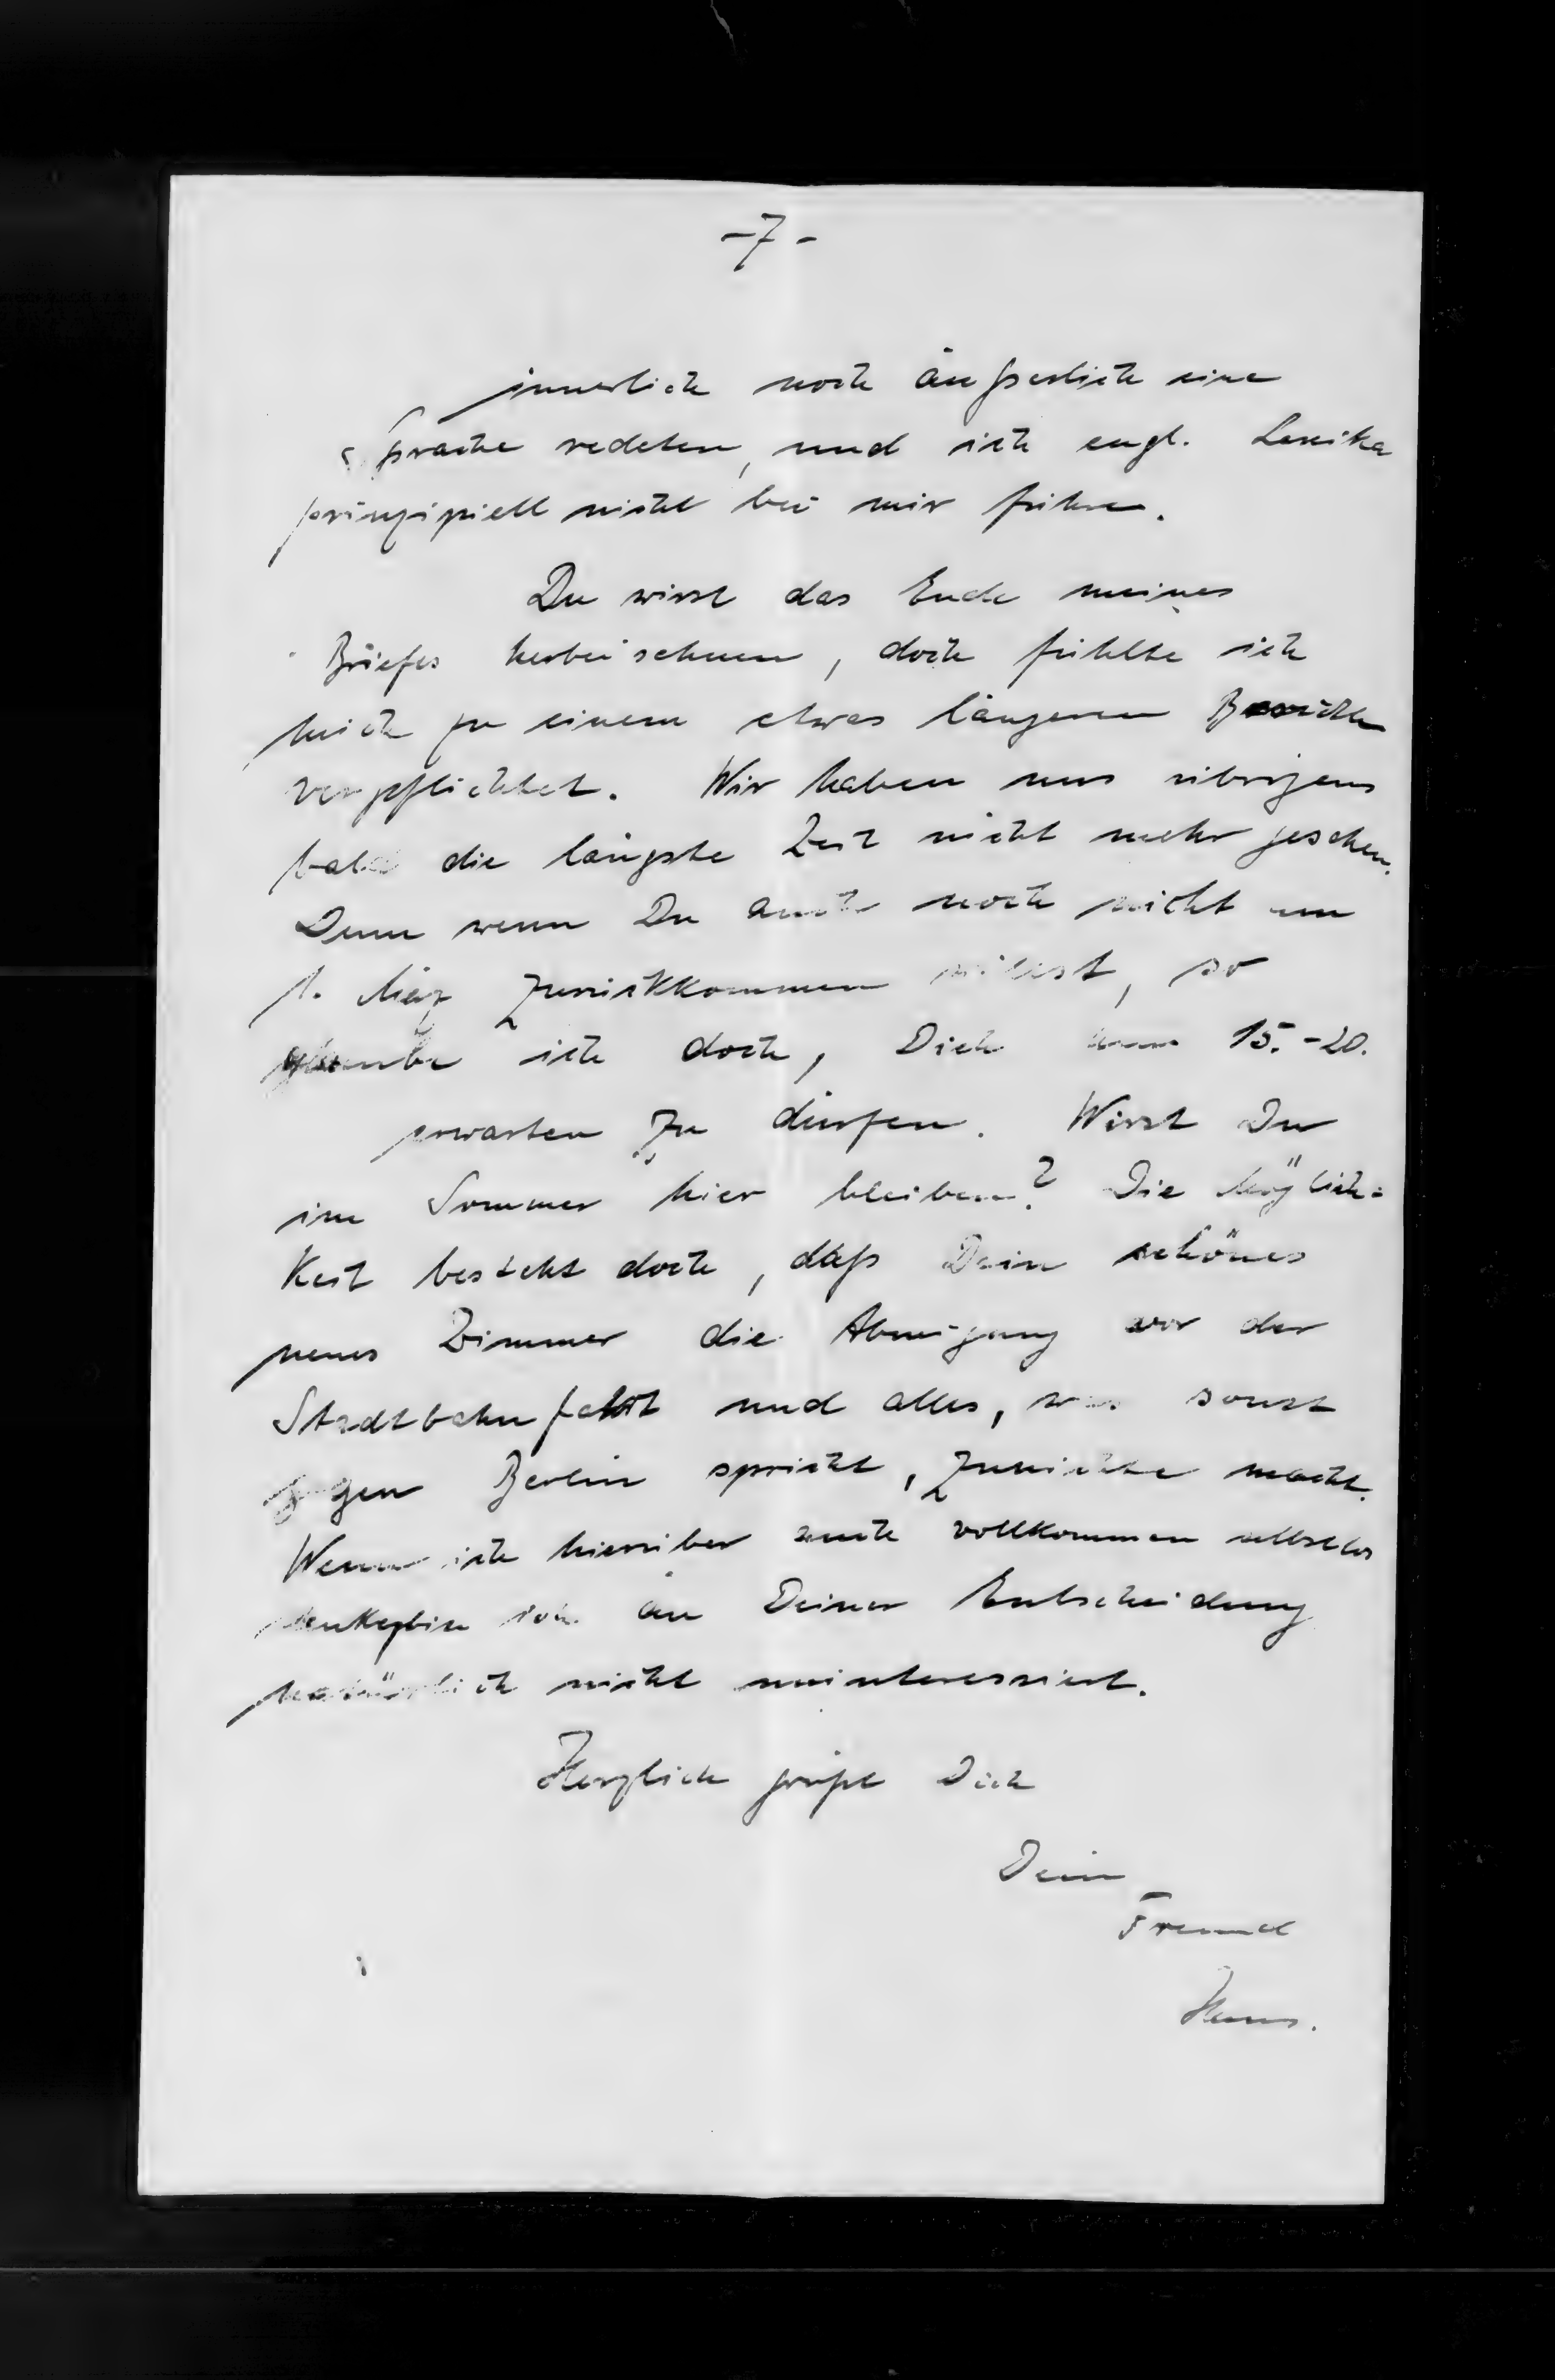 -7-
innerlich noch äußerlich eine
Sprache redeten, und ich engl. Lexika
prinzipiell nicht bei mir führe.
Du wirst das Ende meines
Briefes herbeisehnen, doch fühlte ich
mich zu einem etwas längeren Berichte
verpflichtet. Wir haben uns übrigens
bald die längste Zeit nicht mehr gesehen.
Denn wenn Du auch noch nicht am
1. März zurückkommen willst, so
glaube ich doch, Dich 15.-20.
erwarten zu dürfen. Wirst Du
im Sommer hier bleiben? Die Möglich=
keit besteht doch, daß Dein schönes
neues Zimmer die Abneigung vor der
Stadtbahnfahrt und alles, was sonst
gegen Berlin spricht, zunichte macht.
Wenn ich hierüber auch vollkommen selbstlos
denke, bin ich an Deiner Entscheidung
natürlich nicht uninteressiert.
Herzlich grüßt Dich
Dein
Freund
Hans.